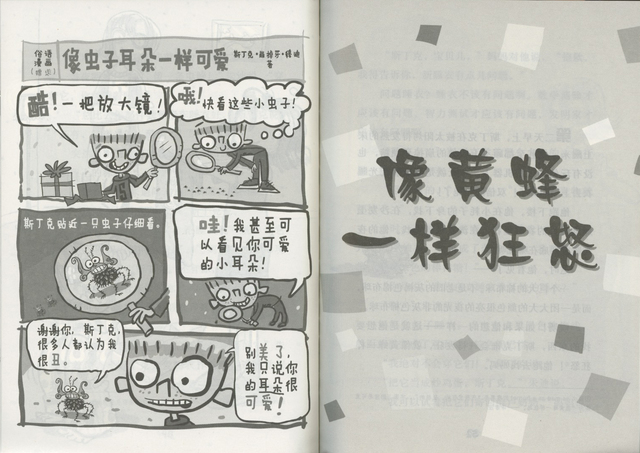 俗语
漫画
像虫子耳朵一样可爱
著
酷！一把放大镜！
哦！快看这些小虫子！
斯丁克贴近一只虫子仔细看。
哇！我甚至可
以看见你可爱
的小耳朵！
谢谢你，斯丁克，
很多人都认为我
很丑。
别美了，
我只说你
的耳朵很
可爱！
像黄蜂
一样狂怒